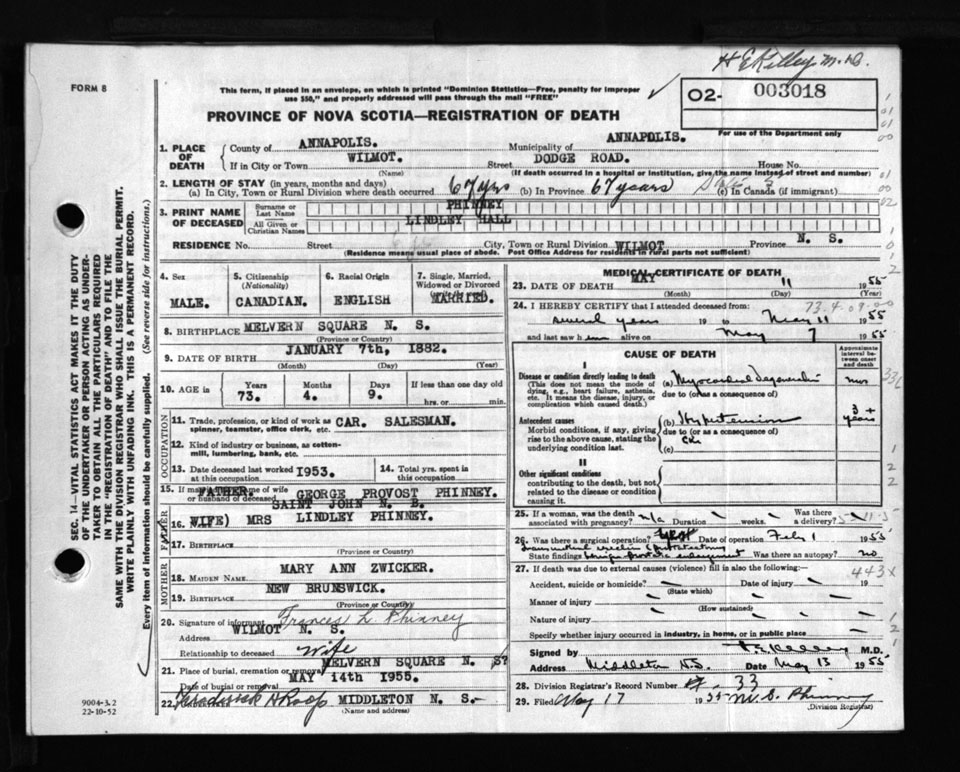 H E Kelley M.D.
FORM 8
This form, if placed in an envelope, on which is printed "Dominion Statistics—Free, penalty for improper use $50," and properly addressed will pass through the mail "FREE"
O2- 003018
For use of the Department only
PROVINCE OF NOVA SCOTIA—REGISTRATION OF DEATH
1. PLACE OF DEATH County of ANNAPOLIS. Municipality of ANNAPOLIS.
If in City or Town WILMOT. (Name) Street DODGE ROAD. House No.
(If death occurred in a hospital or institution, give the name instead of street and number)
2. LENGTH OF STAY (in years, months and days)
(a) In City, Town or Rural Division where death occurred 67 yrs (b) In Province 67 years (c) In Canada (if immigrant)
3. PRINT NAME OF DECEASED Surname or Last Name PHINNEY
All Given or Christian Names LINDLEY HALL
RESIDENCE No. Street City, Town or Rural Division WILMOT Province N. S.
(Residence means usual place of abode. Post Office Address for residents in rural parts not sufficient)
4. Sex MALE.
5. Citizenship (Nationality) CANADIAN.
6. Racial Origin ENGLISH
7. Single, Married, Widowed or Divorced MARRIED.
8. BIRTHPLACE MELVERN SQUARE N. S.
(Province or Country)
9. DATE OF BIRTH JANUARY 7th, 1882.
(Month) (Day) (Year)
10. AGE IN Years 73. Months 4. Days 9. If less than one day old hrs. or min.
OCCUPATION
11. Trade, profession, or kind of work as spinner, teamster, office clerk, etc. CAR. SALESMAN.
12. Kind of industry or business, as cotton-mill, lumbering, bank, etc.
13. Date deceased last worked at this occupation 1953.
14. Total yrs. spent in this occupation
15. If married name of wife or husband of deceased
FATHER. GEORGE PROVOST PHINNEY.
SAINT JOHN N. B.
FATHER
16. WIFE) MRS LINDLEY PHINNEY.
17. BIRTHPLACE
(Province or Country)
MOTHER
18. MAIDEN NAME MARY ANN ZWICKER.
19. BIRTHPLACE NEW BRUNSWICK.
(Province or Country)
20. Signature of informant Frances L Phinney
Address WILMOT N. S.
Relationship to deceased Wife
21. Place of burial, cremation or removal MELVERN SQUARE N. S?
Date of burial or removal MAY 14th 1955.
22. MIDDLETON N. S.
(Name and address)
MEDICAL CERTIFICATE OF DEATH
23. DATE OF DEATH MAY 11 1955
(Month) (Day) (Year)
24. I HEREBY CERTIFY that I attended deceased from: 73.4.09.00
several years 19 to May 11 1955
and last saw him alive on May 7 1955
CAUSE OF DEATH
Approximate interval between onset and death
I
Disease or condition directly leading to death (a)
(This does not mean the mode of dying, e.g., heart failure, asthenia, etc. It means the disease, injury, or complication which caused death.)
due to (or as a consequence of)
Antecedent causes (b) Hypertension 3 + years
Morbid conditions, if any, giving rise to the above cause, stating the underlying condition last.
due to (or as a consequence of)
(c)
II
Other significant conditions contributing to the death, but not related to the disease or condition causing it
25. If a woman, was the death associated with pregnancy? n/a Duration weeks. Was there a delivery?
26. Was there a surgical operation? yes Date of operation Feby 1 1955
State findings benign prostatic enlargement Was there an autopsy? no
27. If death was due to external causes (violence) fill in also the following: 443X
Accident, suicide or homicide? Date of injury 19
(State which)
Manner of injury
(How sustained)
Nature of injury
Specify whether injury occurred in industry, in home, or in public place
Signed by H E Kelley M.D.
Address Middleton N.S. Date May 13 1955
28. Division Registrar's Record Number 33
29. Filed May 17 1955 M. S. Phinney
(Division Registrar)
SEC. 14—VITAL STATISTICS ACT MAKES IT THE DUTY OF THE UNDERTAKER OR PERSON ACTING AS UNDERTAKER TO OBTAIN ALL THE PARTICULARS REQUIRED IN THE "REGISTRATION OF DEATH" AND TO FILE THE SAME WITH THE DIVISION REGISTRAR WHO SHALL ISSUE THE BURIAL PERMIT.
WRITE PLAINLY WITH UNFADING INK. THIS IS A PERMANENT RECORD.
Every item of information should be carefully supplied. (See reverse side for instructions.)
9004-3.2
22-10-52